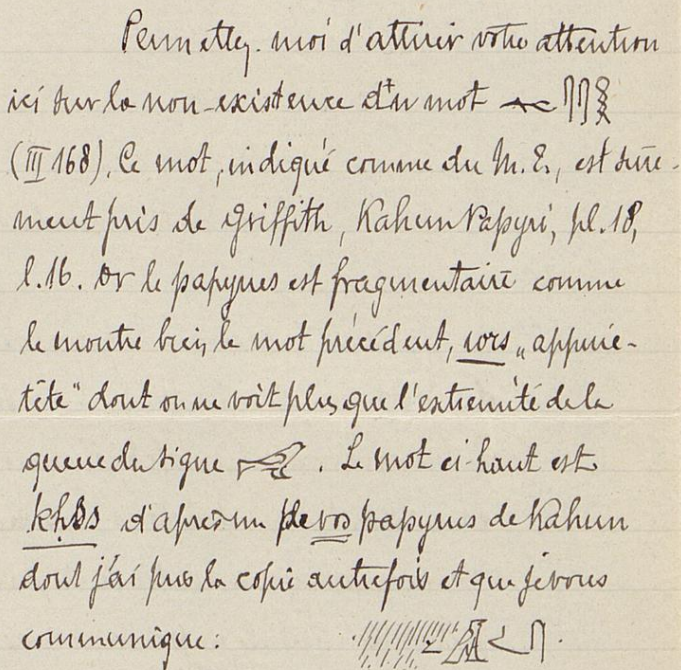 Permettez-moi d'attirer votre attention
ici sur la non-existence d'un mot 𓆑𓋴𓋴𓎛
(III 168). Ce mot, indiqué comme du M. E., est sûre-
ment pris de Griffith, Kahun Papyri, pl. 18,
l. 16. Or le papyrus est fragmentaire comme
le montre bien le mot précédent, wrs „appuie-
tête" dont on ne voit plus que l'extrémité de la
queue du signe 𓅨. Le mot ci-haut est
khbs d'après un de vos papyrus de Kahun
dont j'ai pris la copie autrefois et que je vous
communique: